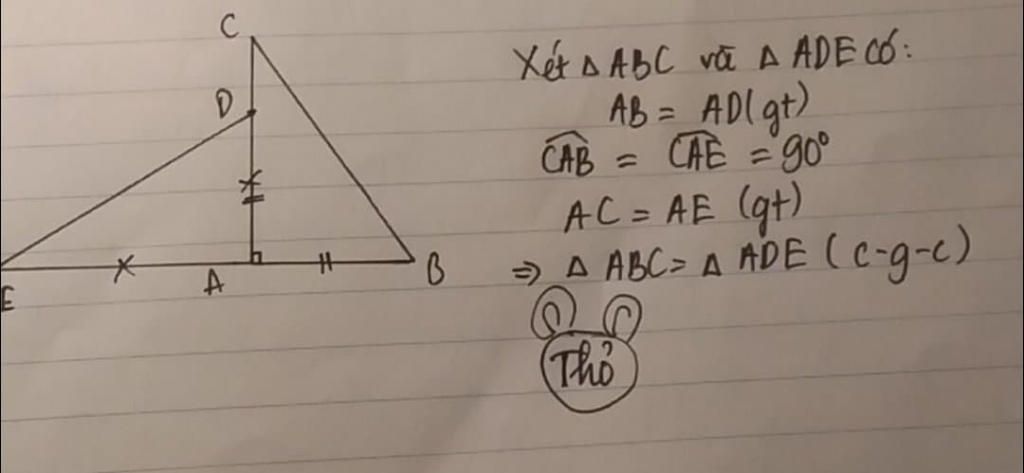 C
D
E
A
B
Xét △ ABC và △ ADE có:
AB = AD (gt)
CAB = CAE = 90°
AC = AE (gt)
⇒ △ ABC = △ ADE (c-g-c)
Thỏ